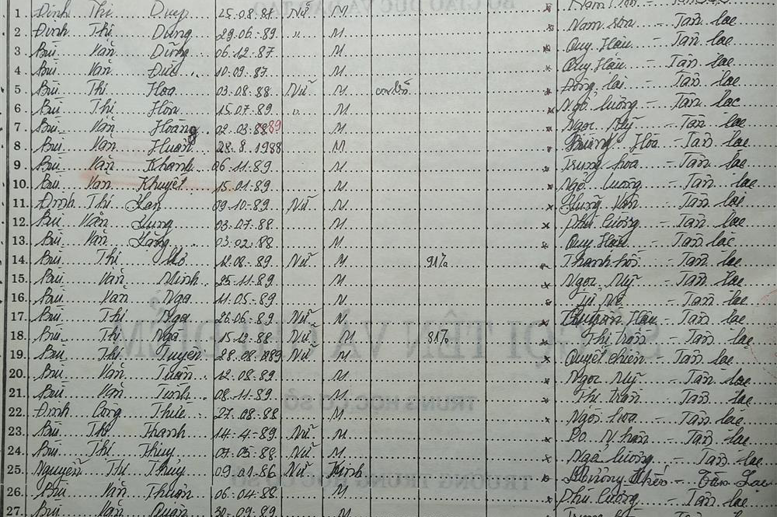 1. Đinh Thị Duy 25.08.87 Nữ M
2. Đinh Thị Dung 29.06.89 " M Nam Sơn - Tân Lạc
3. Bùi Văn Dũng 06.12.87 M Quy Hậu - Tân Lạc
4. Bùi Văn Đức 10.09.87 M Quy Hậu - Tân Lạc
5. Bùi Thị Hoa 03.08.88 Nữ M Đông Lai - Tân Lạc
6. Bùi Thị Hòn 15.07.89 " M Ngổ Luông - Tân Lạc
7. Bùi Văn Hoàng 02.03.88 89 M Ngọc Mỹ - Tân Lạc
8. Bùi Văn Huấn 28.8.1988 M Hòa - Tân Lạc
9. Bùi Văn Khánh 06.11.89 M Trung Hoà - Tân Lạc
10. Bùi Văn Khuyết 15.01.89 M Ngổ Luông - Tân Lạc
11. Đinh Thị Lan 09.10.89 Nữ M Tân Lạc
12. Bùi Văn Lung 03.07.88 M Phú Cường - Tân Lạc
13. Bùi Văn 03.02.88 M Quy Hậu - Tân Lạc
14. Bùi Thị 12.08.89 Nữ M 91% Thanh Hối - Tân Lạc
15. Bùi Văn Minh 25.11.89 M Ngọc Mỹ - Tân Lạc
16. Bùi Văn Nga 11.05.89 M Tử Nê - Tân Lạc
17. Bùi Thị Nga 26.06.89 Nữ M Tân Lạc
18. Bùi Thị Nga 15.12.88 Nữ M 81% Thị Trấn - Tân Lạc
19. Bùi Thị Tuyến 28.08.1989 Nữ M Quyết Chiến - Tân Lạc
20. Bùi Văn Tuấn 12.08.89 M Ngọc Mỹ - Tân Lạc
21. Bùi Văn Tình 08.11.89 M Thị Trấn - Tân Lạc
22. Đinh Công Thức 27.08.88 M Ngòi Hoa - Tân Lạc
23. Bùi Thị Thanh 14-4-89 Nữ M Do Nhân - Tân Lạc
24. Bùi Thị Thủy 07.05.88 Nữ M Ngổ Luông - Tân Lạc
25. Nguyễn Thị Thúy 09.01.86 Nữ Kinh Mường Khến - Tân Lạc
26. Bùi Văn Thuận 06.04.88 M Phú Cường - Tân Lạc
27. Bùi Văn Quân 30-09.89